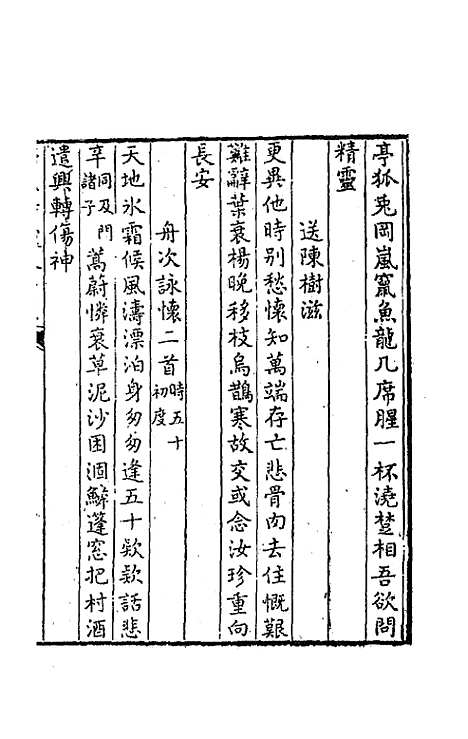 亭狐兎岡嵐竄魚龍几席腥一杯澆楚相吾欲問
精靈
送陳樹滋
更異他時別愁懷知萬端存亡悲骨肉去住慨艱
難辭葉衰楊晚移枝烏鵲寒故交或念汝珍重向
長安
舟次詠懷二首時五十初度
天地氷霜候風濤漂泊身匆匆逢五十欵欵話悲
辛同及門諸子蒿蔚憐衰草泥沙困涸鱗蓬窓把村酒
遣興轉傷神